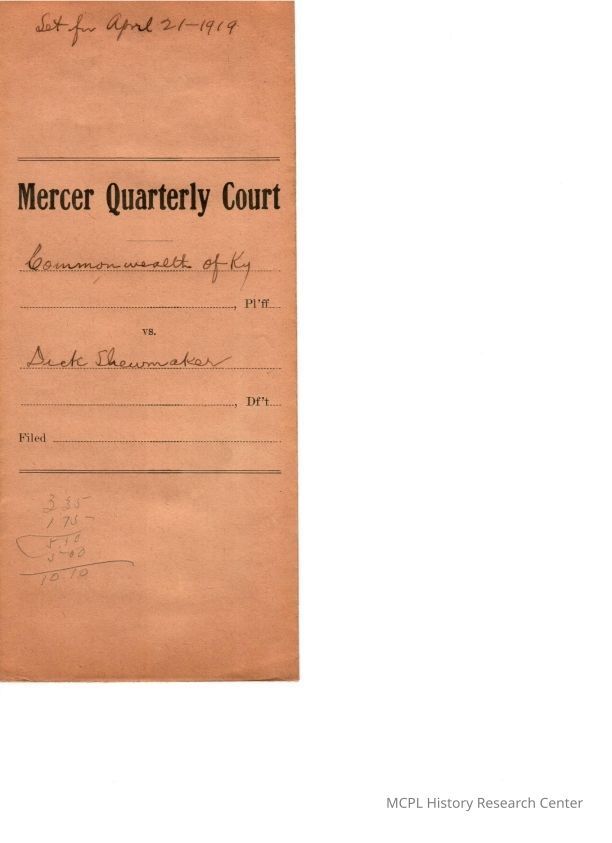 Set for April 21-1919
Mercer Quarterly Court
Commonwealth of Ky
, Pl'ff.
vs.
Dick Shewmaker
, Df't.
Filed
3 35
1 75
5.10
5.00
10.10
MCPL History Research Center